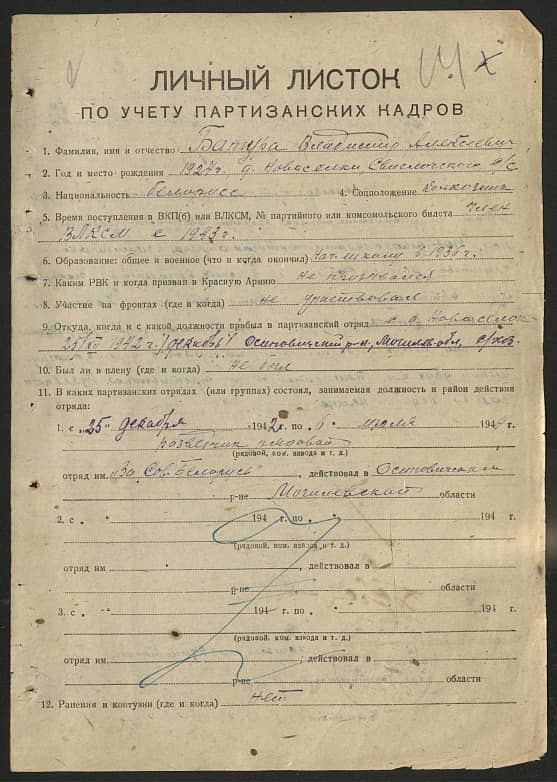 ЛИЧНЫЙ ЛИСТОК
ПО УЧЕТУ ПАРТИЗАНСКИХ КАДРОВ
1. Фамилия, имя и отчество Бапура Владимир Алексеевич
2. Год и место рождения 1927 г. д. Новоселки Свислочского с/с
3. Национальность белорусс 4. Соцположение Колхозник
5. Время поступления в ВКП(б) или ВЛКСМ, № партийного или комсомольского билета член
ВЛКСМ с 1943 г.
6. Образование: общее и военное (что и когда окончил) Нач. школа в 1936 г.
7. Каким РВК и когда призван в Красную Армию Не призывался
8. Участие на фронтах (где и когда) не участвовал
9. Откуда, когда и с какой должности прибыл в партизанский отряд с д. Новоселок
25/XII 1942 г. Осиповичский р-н, Могил. обл.
10. Был ли в плену (где и когда) не был
11. В каких партизанских отрядах (или группах) состоял, занимаемая должность и район действия
отряда:
1. с „25" декабря 1942 г. по 194 г.
разведчик рядовой
(рядовой, ком. взвода и т. д.)
отряд им „За Сов. Белорусь", действовал в Осиповичском
р-не Могилевской области
2. с 194 г. по 194 г.
(рядовой, ком. взвода и т. д.)
отряд им , действовал в
р-не области
3. с 194 г. по 194 г.
(рядовой, ком. взвода и т. д.)
отряд им , действовал в
р-не области
12. Ранения и контузии (где и когда) нет